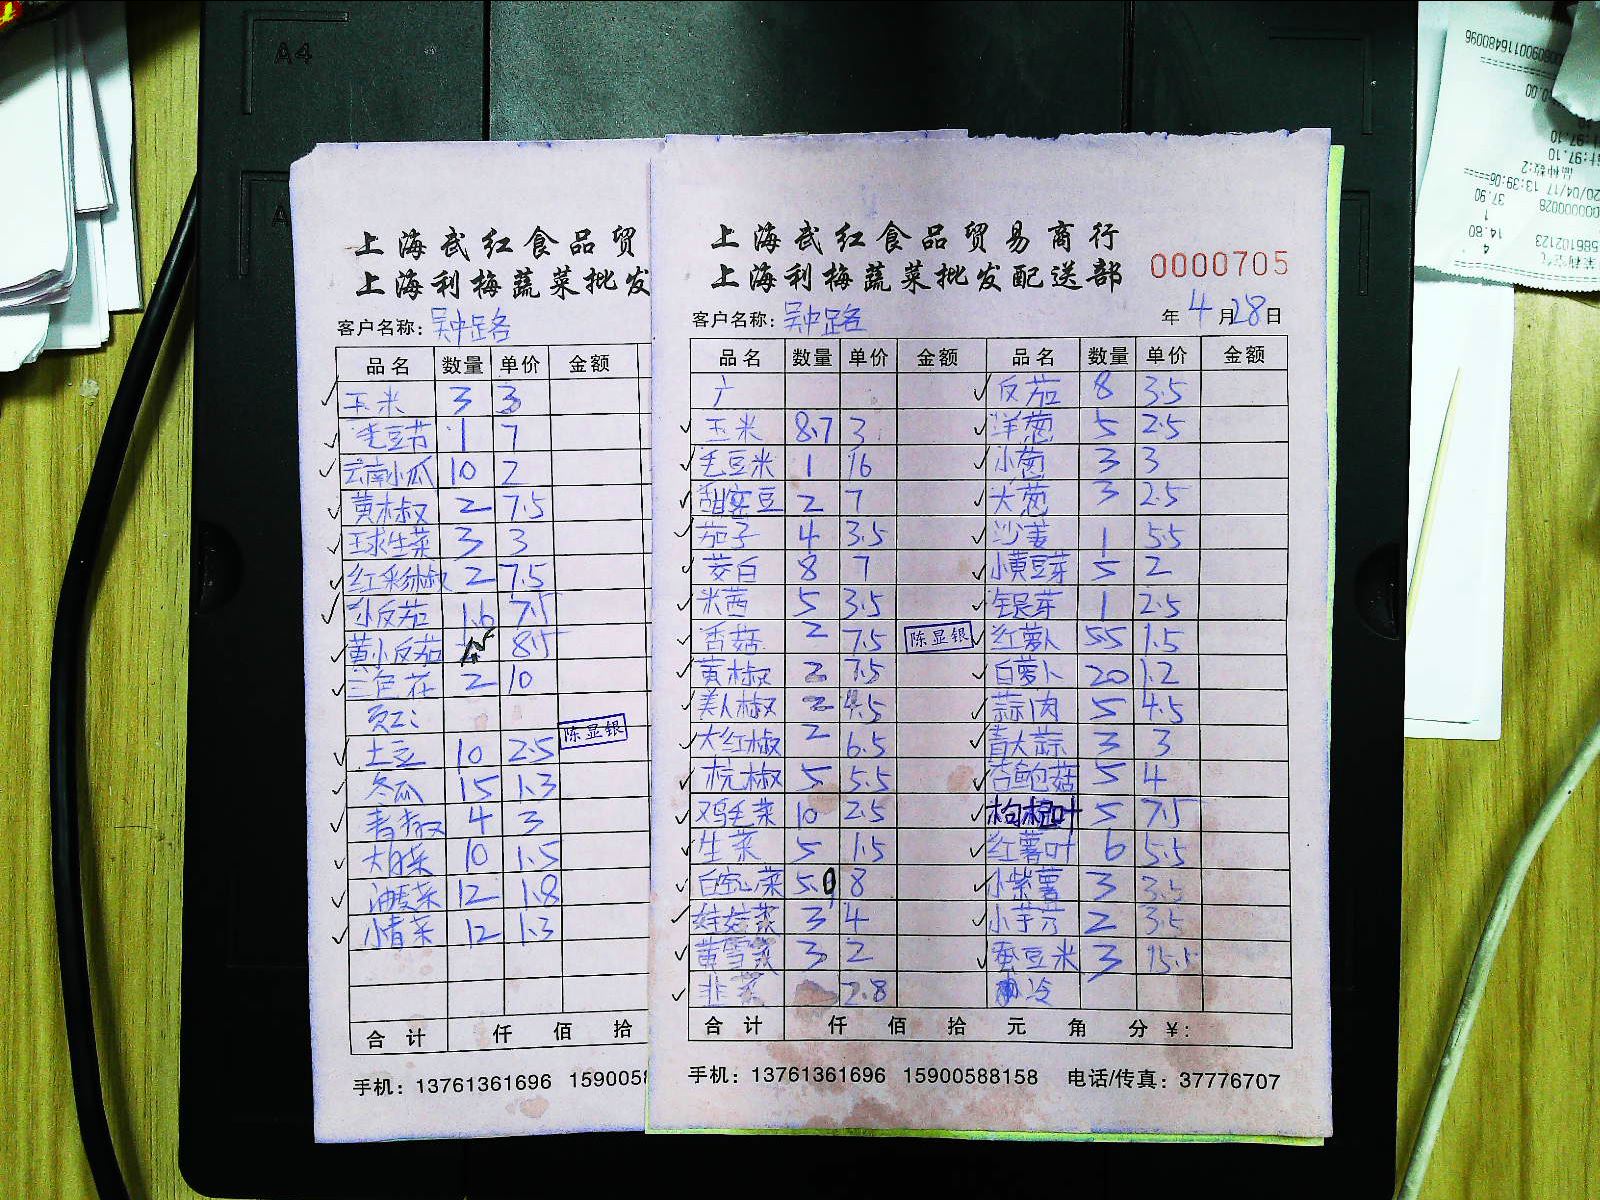 A4
上海武红食品贸
上海利梅蔬菜批发
客户名称：吴中路
品名 数量 单价 金额
玉米 3 3
毛豆节 1 7
云南小瓜 10 2
黄木椒 2 7.5
球生菜 3 3
红彩椒 2 7.5
小反茄 1.6 7.5
黄小反茄 8.5
三色花 2 10
员工:
土豆 10 2.5
陈显银
冬瓜 15 1.3
青椒 4 3
大白菜 10 1.5
油麦菜 12 1.8
小青菜 12 1.3
合计 仟 佰 拾
手机：13761361696 1590058
上海武红食品贸易商行
上海利梅蔬菜批发配送部
0000705
客户名称：吴中路 年 4 月 28 日
品名 数量 单价 金额 品名 数量 单价 金额
广 反茄 8 3.5
玉米 8.7 3 洋葱 5 2.5
毛豆米 1 16 小葱 3 3
甜蜜豆 2 7 大葱 3 2.5
茄子 4 3.5 沙姜 1 5.5
茭白 8 7 小黄豆芽 5 2
米茜 5 3.5 银芽 1 2.5
香菇 2 7.5 陈显银 红萝卜 55 1.5
黄椒 2 7.5 白萝卜 20 1.2
美人椒 2 4.5 蒜肉 5 4.5
大红椒 2 6.5 青大蒜 3 3
杭椒 5 5.5 杏鲍菇 5 4
鸡毛菜 10 2.5 枸杞叶 5 7.5
生菜 5 1.5 红薯叶 6 5.5
白空心菜 5.9 8 小紫薯 3 3.5
娃娃菜 3 4 小芋艿 2 3.5
黄雪菜 3 2 蚕豆米 3 15.5
韭菜 2.8 冷
合计 仟 佰 拾 元 角 分 ￥:
手机：13761361696 15900588158 电话/传真：37776707